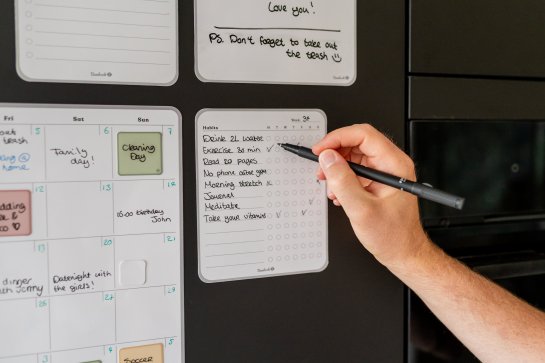 Love you!
PS. Don't forget to take out
the trash
Fri
Sat
Sun
5
6
7
trash
Family
day!
Cleaning
Day
@
home
12
13
14
&
co
16:00 birthday
John
19
20
21
dinner
Datenight with
the girls!
26
27
28
4
5
Soccer
Habits
Week 34
M T W T F S S
Drink 2L water
Exercise 30 min
Read 20 pages
No phone after 9pm
Morning stretch
Journal
Meditate
Take your vitamins